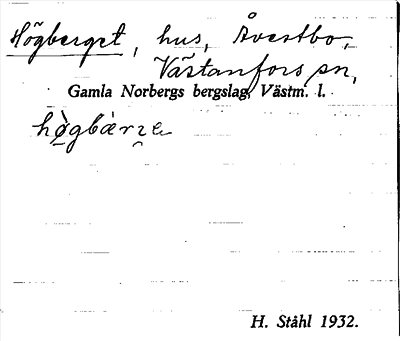 Högberget, hus, Åvestbo,
Västanfors sn,
Gamla Norbergs bergslag, Västm. l.
hø̀gbær̀ʒe
H. Ståhl 1932.